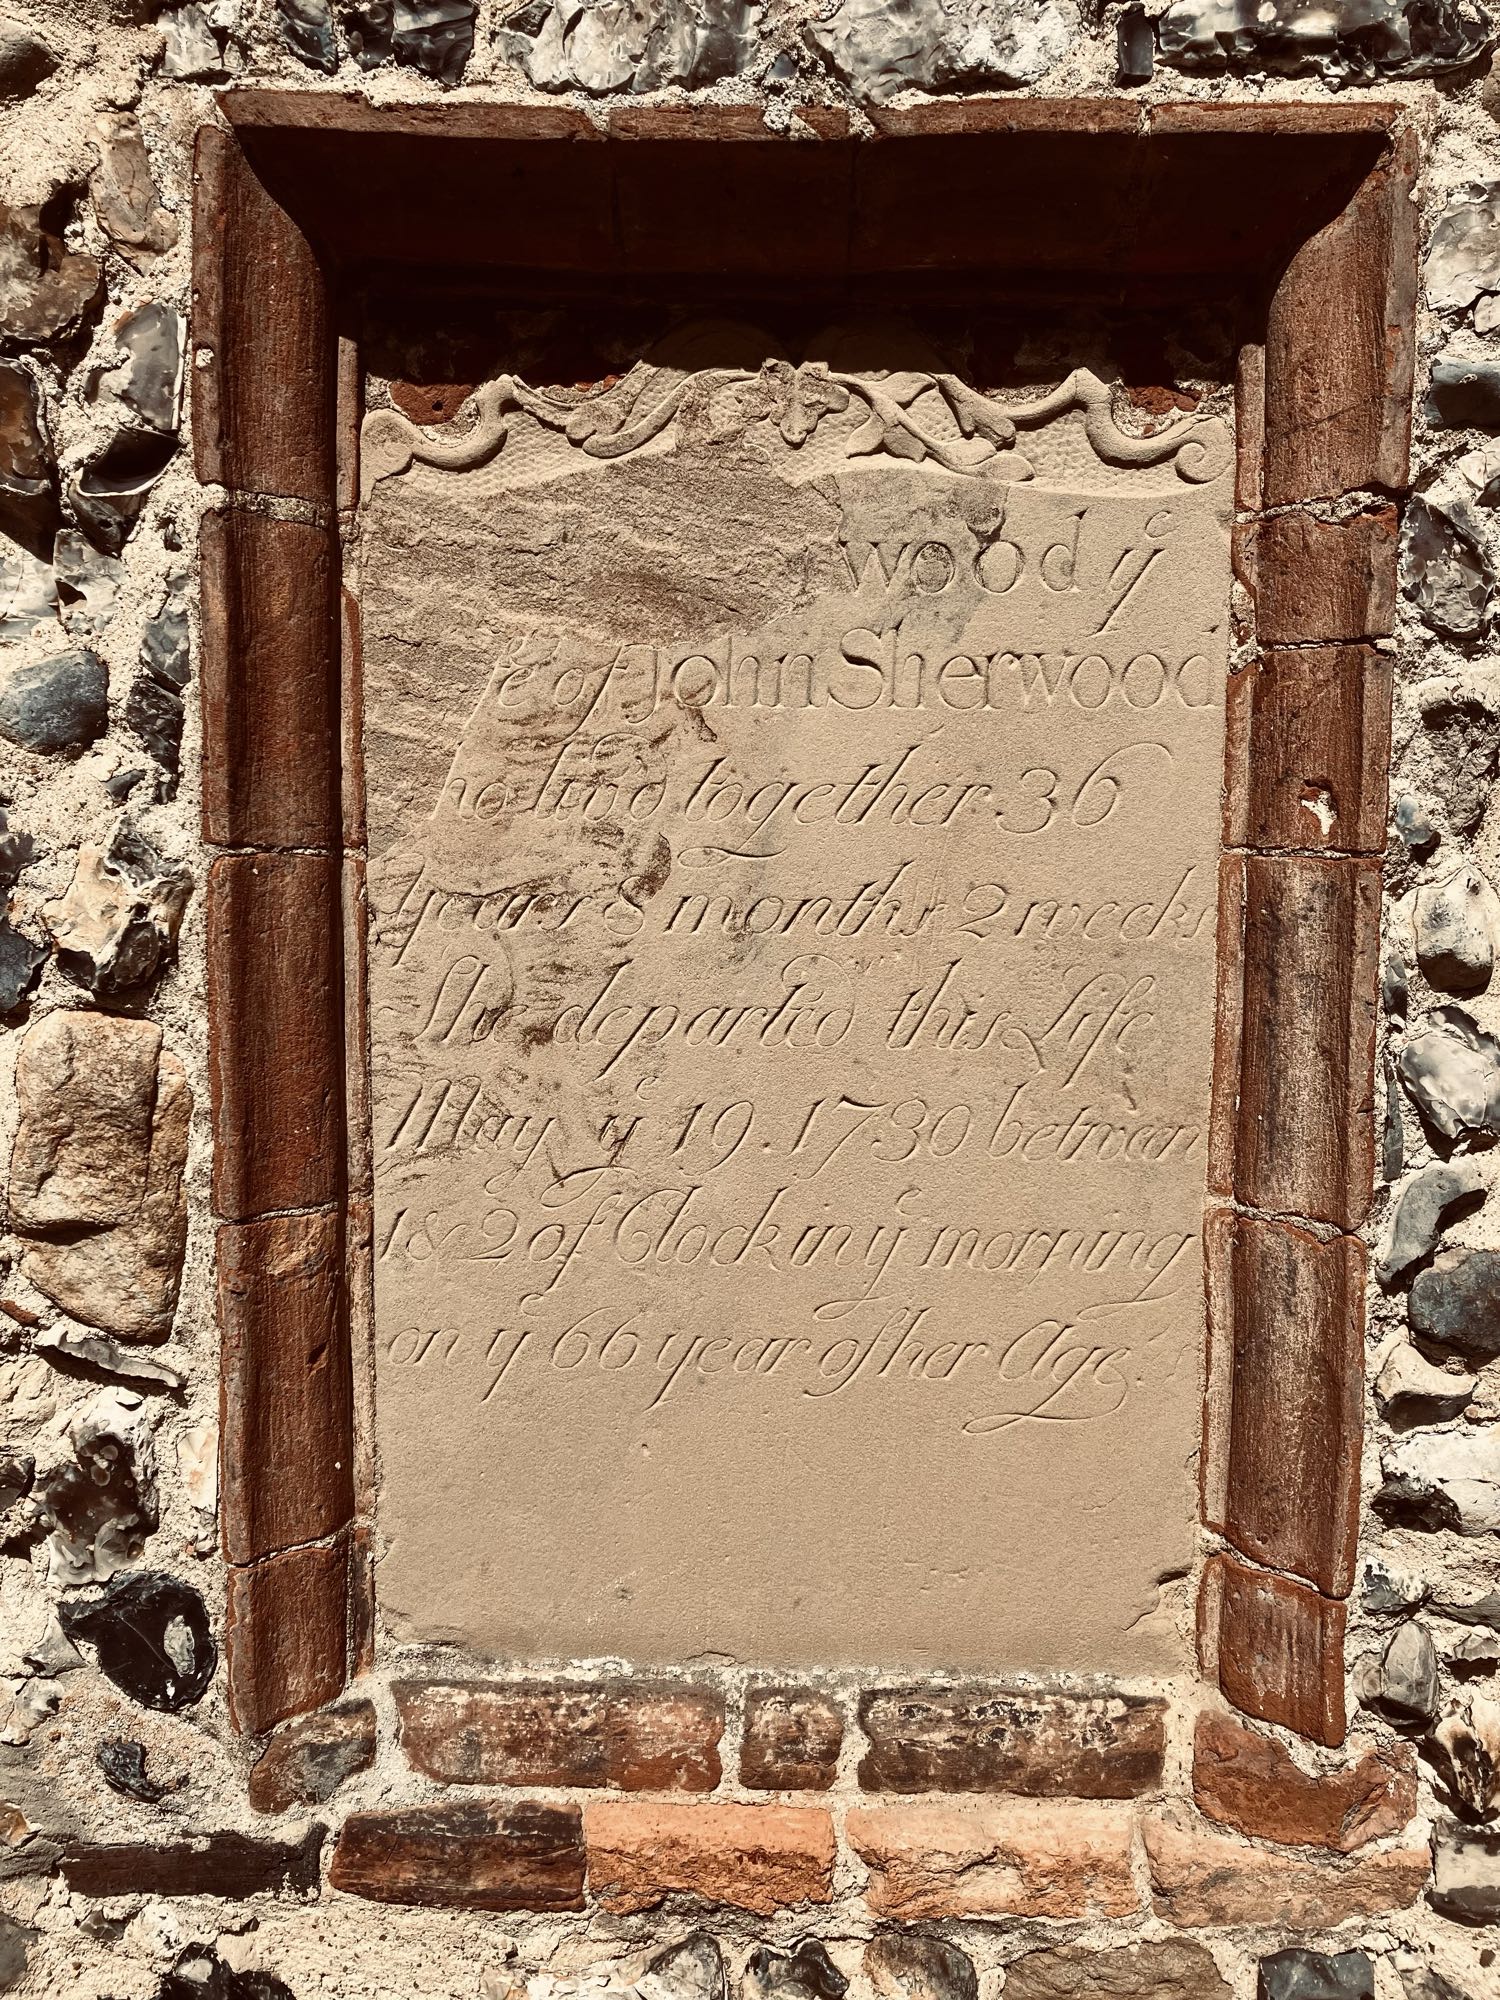 rwood yᵉ
fe of John Sherwood
ho liv'd together 36
years 8 months 2 weeks
She departed this Life
May yᵉ 19. 1730 betwixn
1 & 2 of Clock in yᵉ morning
on yᵉ 66 year of her Age.